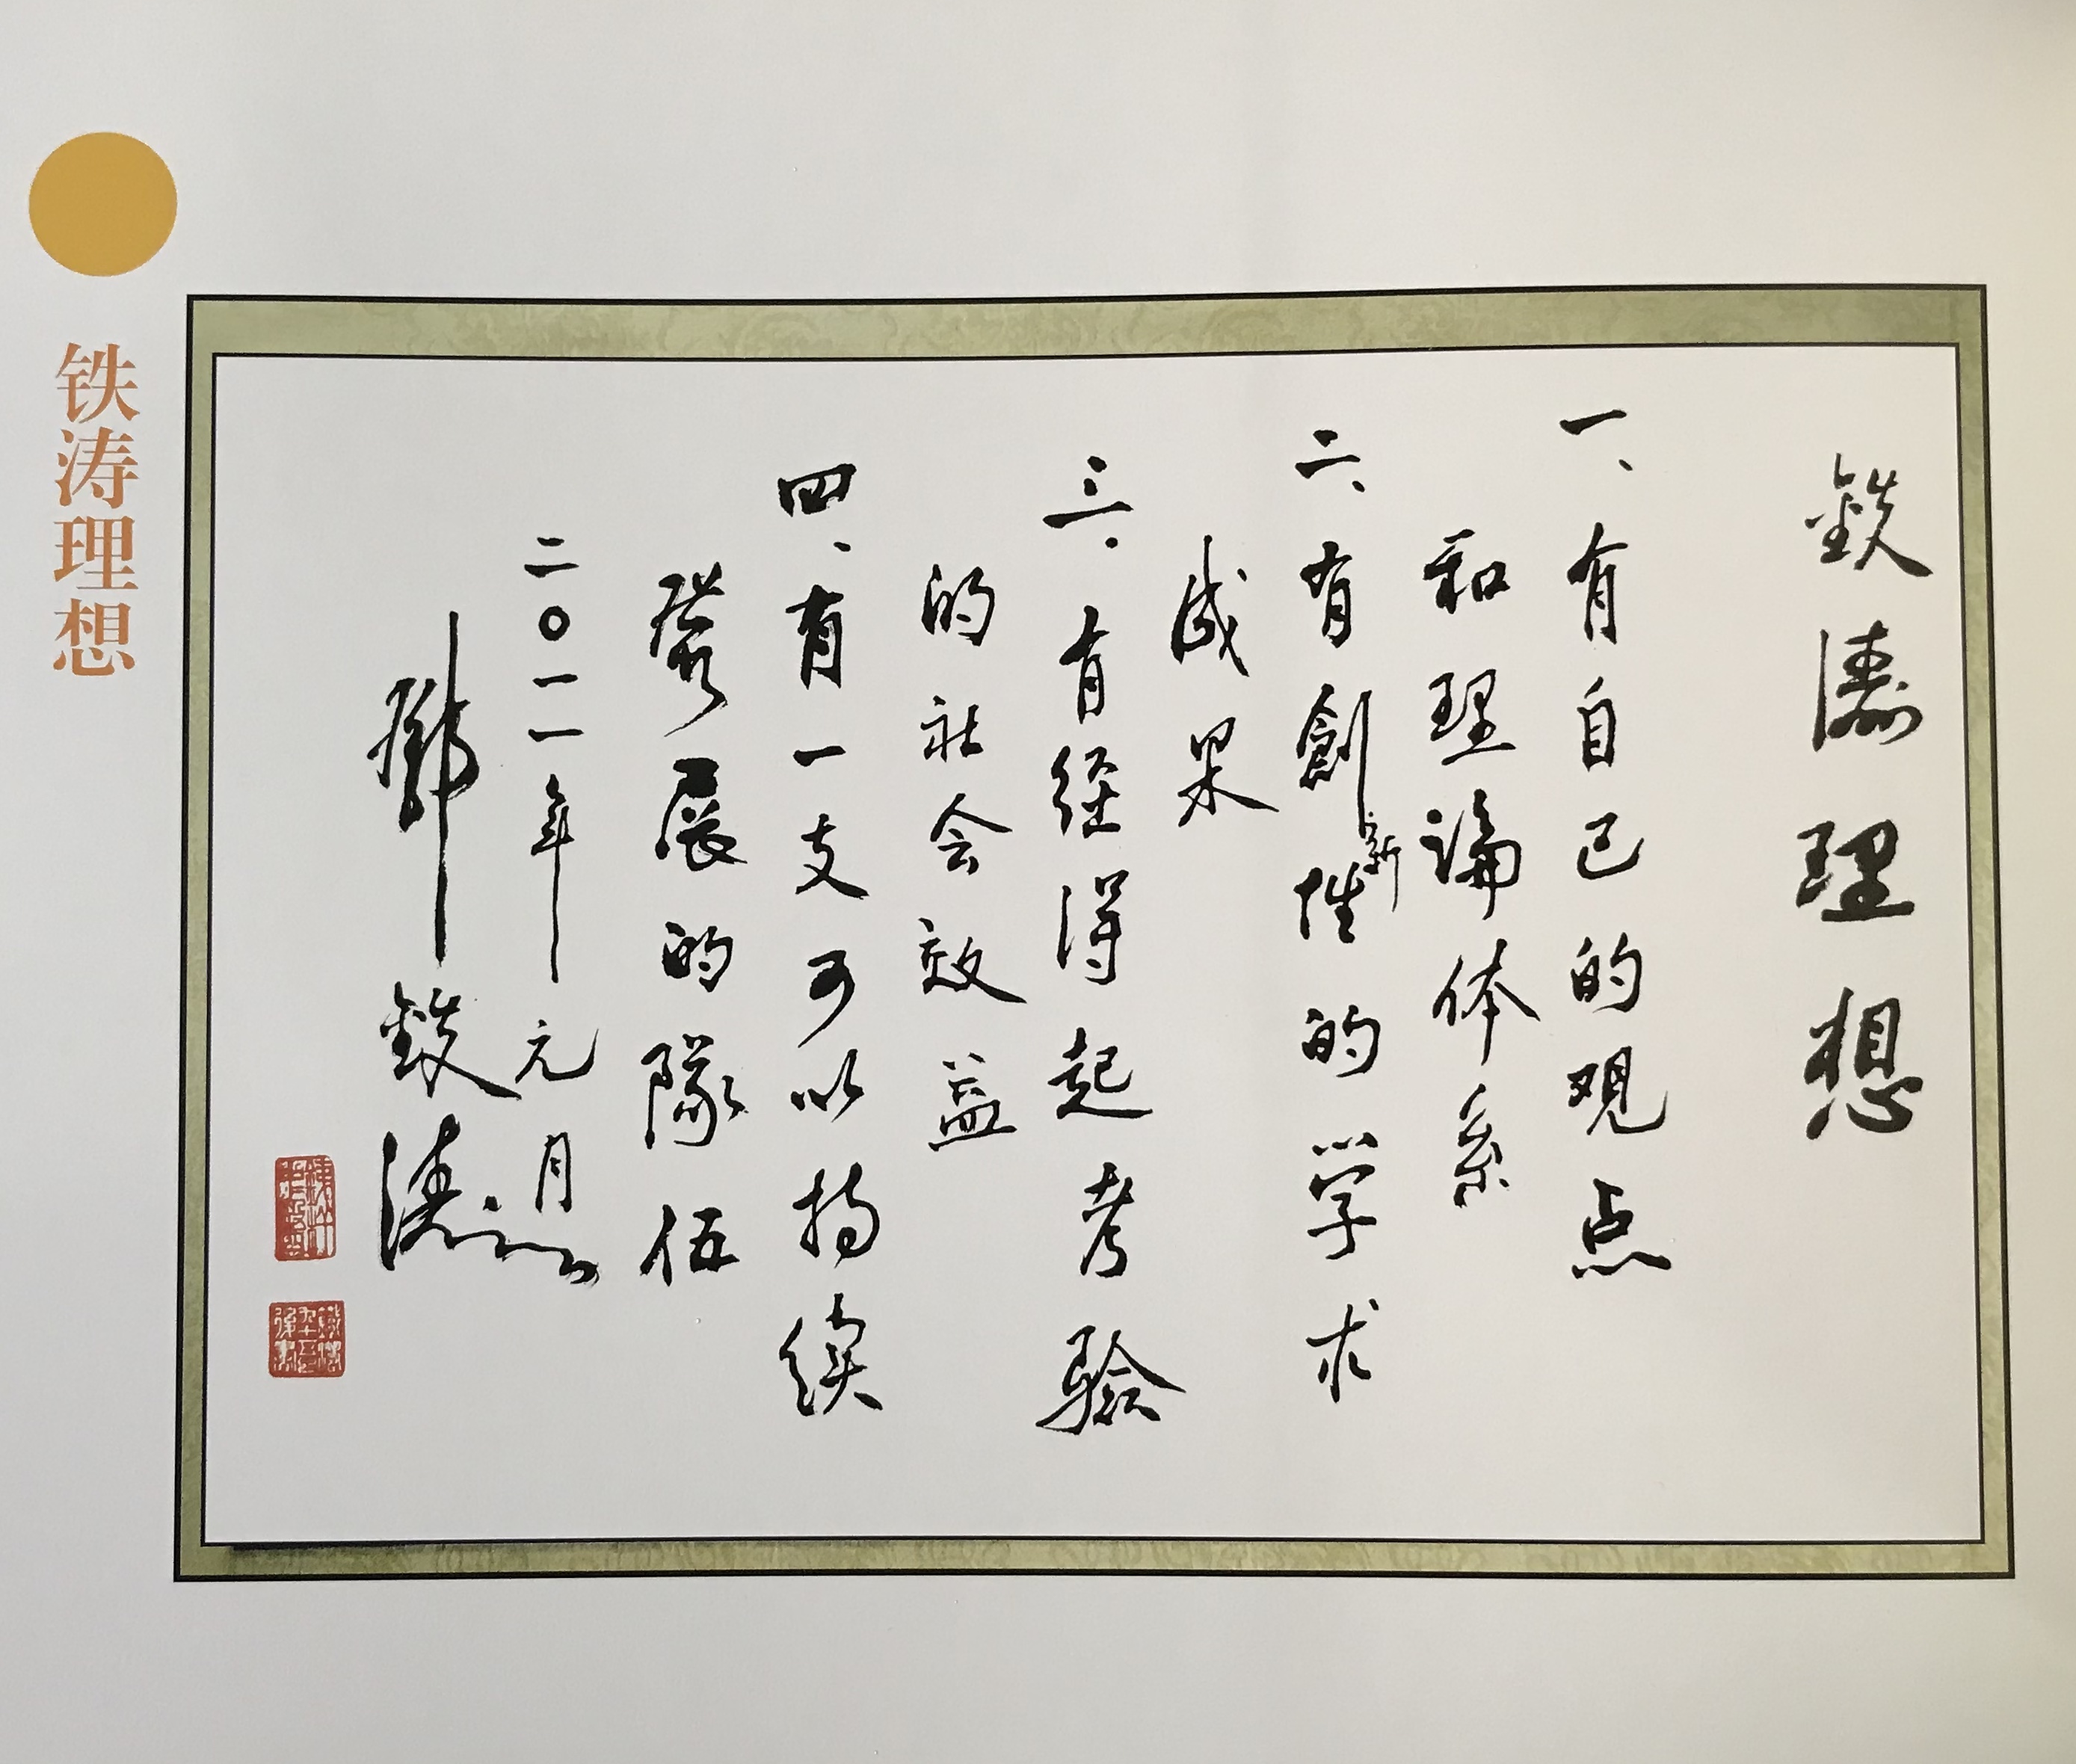 铁涛理想
鉄濤理想
一、有自己的观点
和理論体系
二、有創新性的学术
成果
三、有经得起考验
的社会效益
四、有一支可以持续
發展的隊伍
二〇一一年元月
鄧鉄涛